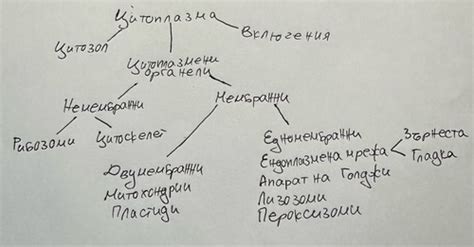 Цитоплазма
Цитозол
Включения
Цитоплазмени
органели
Немембранни
Мембранни
Рибозоми
Цитоскелет
Двумембранни
Митохондрии
Пластиди
Едномембранни
Ендоплазмена мрежа
Зърнеста
Гладка
Апарат на Голджи
Лизозоми
Пероксизоми